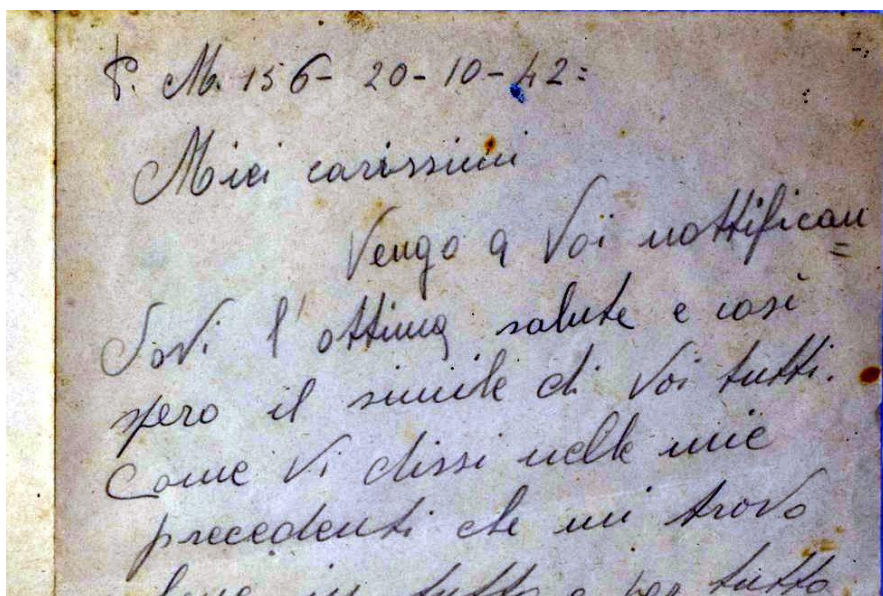 P. M. 156- 20-10-42=
Miei carissimi
Vengo a Voi nottifican=
dovi l'ottima salute e così
spero il simile di Voi tutti.
Come Vi dissi nelle mie
precedenti che mi trovo
bene in tutto e per tutto